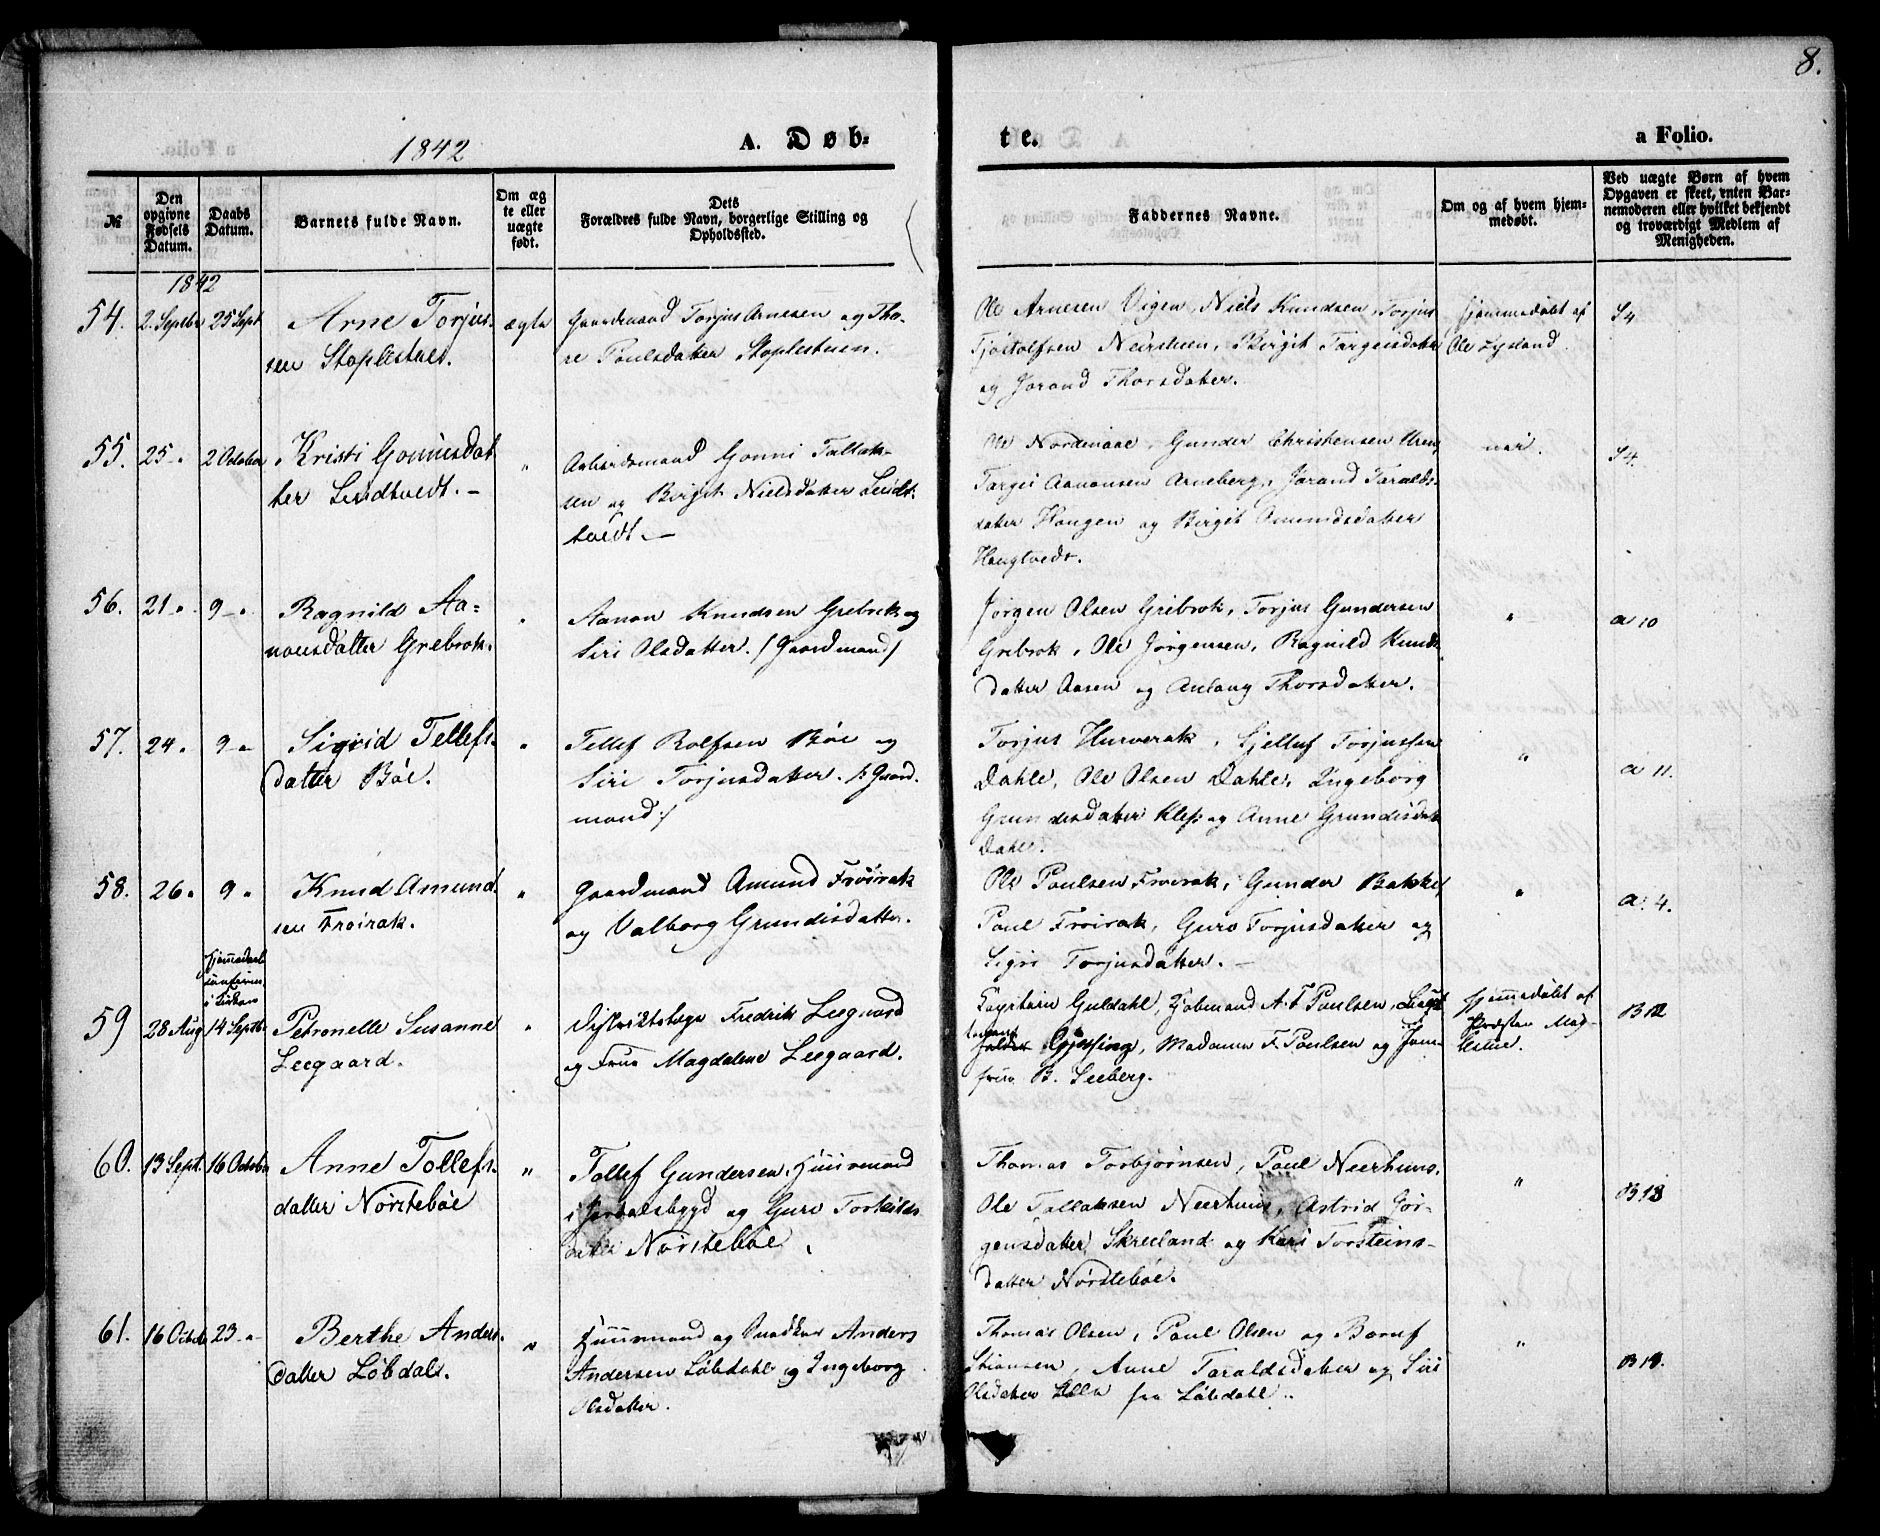 8.
1842
A. Døb-
te.
a Folio.
№
Den opgivne Fødsels Datum.
Daabs Datum.
Barnets fulde Navn.
Om ægte eller uægte født.
Dets Forældres fulde Navn, borgerlige Stilling og Opholdssted.
Faddernes Navne.
Om og af hvem hjemmedøbt.
Ved uægte Børn af hvem Opgaven er skeet, enten Barnemoderen eller hvilket bekjendt og troværdigt Medlem af Menigheden.
1842
54. 2. Septbr 25 Sept
Arne Torjus-
sen Stoplestvet.
ægte
Gaardmand Torjus Arnesen og Tho-
re Poulsdatter Stoplestuen.
Ole Arnesen Vigen, Niels Knudsen, Torjus
Tjostolfsen Neirstuen, Birgit Targeisdatter
og Jorand Thorsdatter.
Hjemmedøbt af
Ole Lysland.
S4
55. 25 " 2 October
Kristi Gonnisdat
ter Lindtvedt. -
"
Arbeidsmand Gonni Tallak-
sen og Birgit Nielsdatter Lindt-
tvedt. -
Ole Nordmaae, Gunder Christensen Uren,
Targei Aanonsen Arneberg, Jorand Taralds-
datter Haugen og Birgit Amundsdatter
Haugtvedt.
nei.
S4.
56. 21 - " 9 - "
Ragnild Aa-
nonsdatter Grebrok.
"
Aanon Knudsen Grebrok og
Siri Olsdatter. /Gaardmand/
Jørgen Olsen Grebrok, Torjus Gundersen
Grebrok, Ole Jørgensen, Ragnild Knuds-
datter Aasen og Anlaug Thorsdatter.
"
a 10
57. 24 " 9 - "
Sigrid Tellefs-
datter Bøe.
"
Tellef Rolfsen Bøe og
Siri Torjusdatter. /: Gaard-
mand:/
Torjus Hurverak, Sjelluf Torjussen
Dahle, Ole Olsen Dahle, Ingeborg
Grundisdatter Klep og Anne Grundisdat
Dahle.
"
a 11.
58. 26 " 9 "
Knud Amund-
sen Frøirak.
"
Gaardmand Amund Frøirak
og Valborg Grundisdatter.
Ole Poulsen Frøirak, Gunder Bakke,
Poul Frøirak, Guro Torjusdatter og
Sigri Torjusdatter. -
"
a. 4.
59 28 Aug 14 Septb
Petronelle Susanne
Leegaard.
"
Districtslæge Fredrik Leegaard
og Frue Magdalene Leegaard.
Capitain Guldahl, Kjøbmand A. F. Poulsen,
Gjessing, Madame F. Poulsen og Jom-
frue B. Seeberg.
Hjemmedøbt af
Provsten Mag-
lestue.
B 12
60. 13 Sept. 16 October
Anne Tollefs-
datter Nørstebøe
"
Tollef Gundersen, Huusmand
i og Guro Torkilds-
datter Nørstebøe.
Thomas Torbjørnsen, Poul Neerhuus,
Ole Tallaksen Neerhuus, Astrid Jør-
gensdatter Skreeland og Kari Torsteins-
datter Nørstebøe.
"
B. 18
61. 16 Octob 23 - "
Berthe Anders-
datter Løbdal.
"
Huusmand og Snedker Anders
Andersen Løbdahl og Ingeborg
Olsdatter.
Thomas Olsen, Poul Olsen og Boruf
Stiansen, Anne Taraldsdatter og Siri
Olsdatter alle fra Løbdahl.
"
B 18.